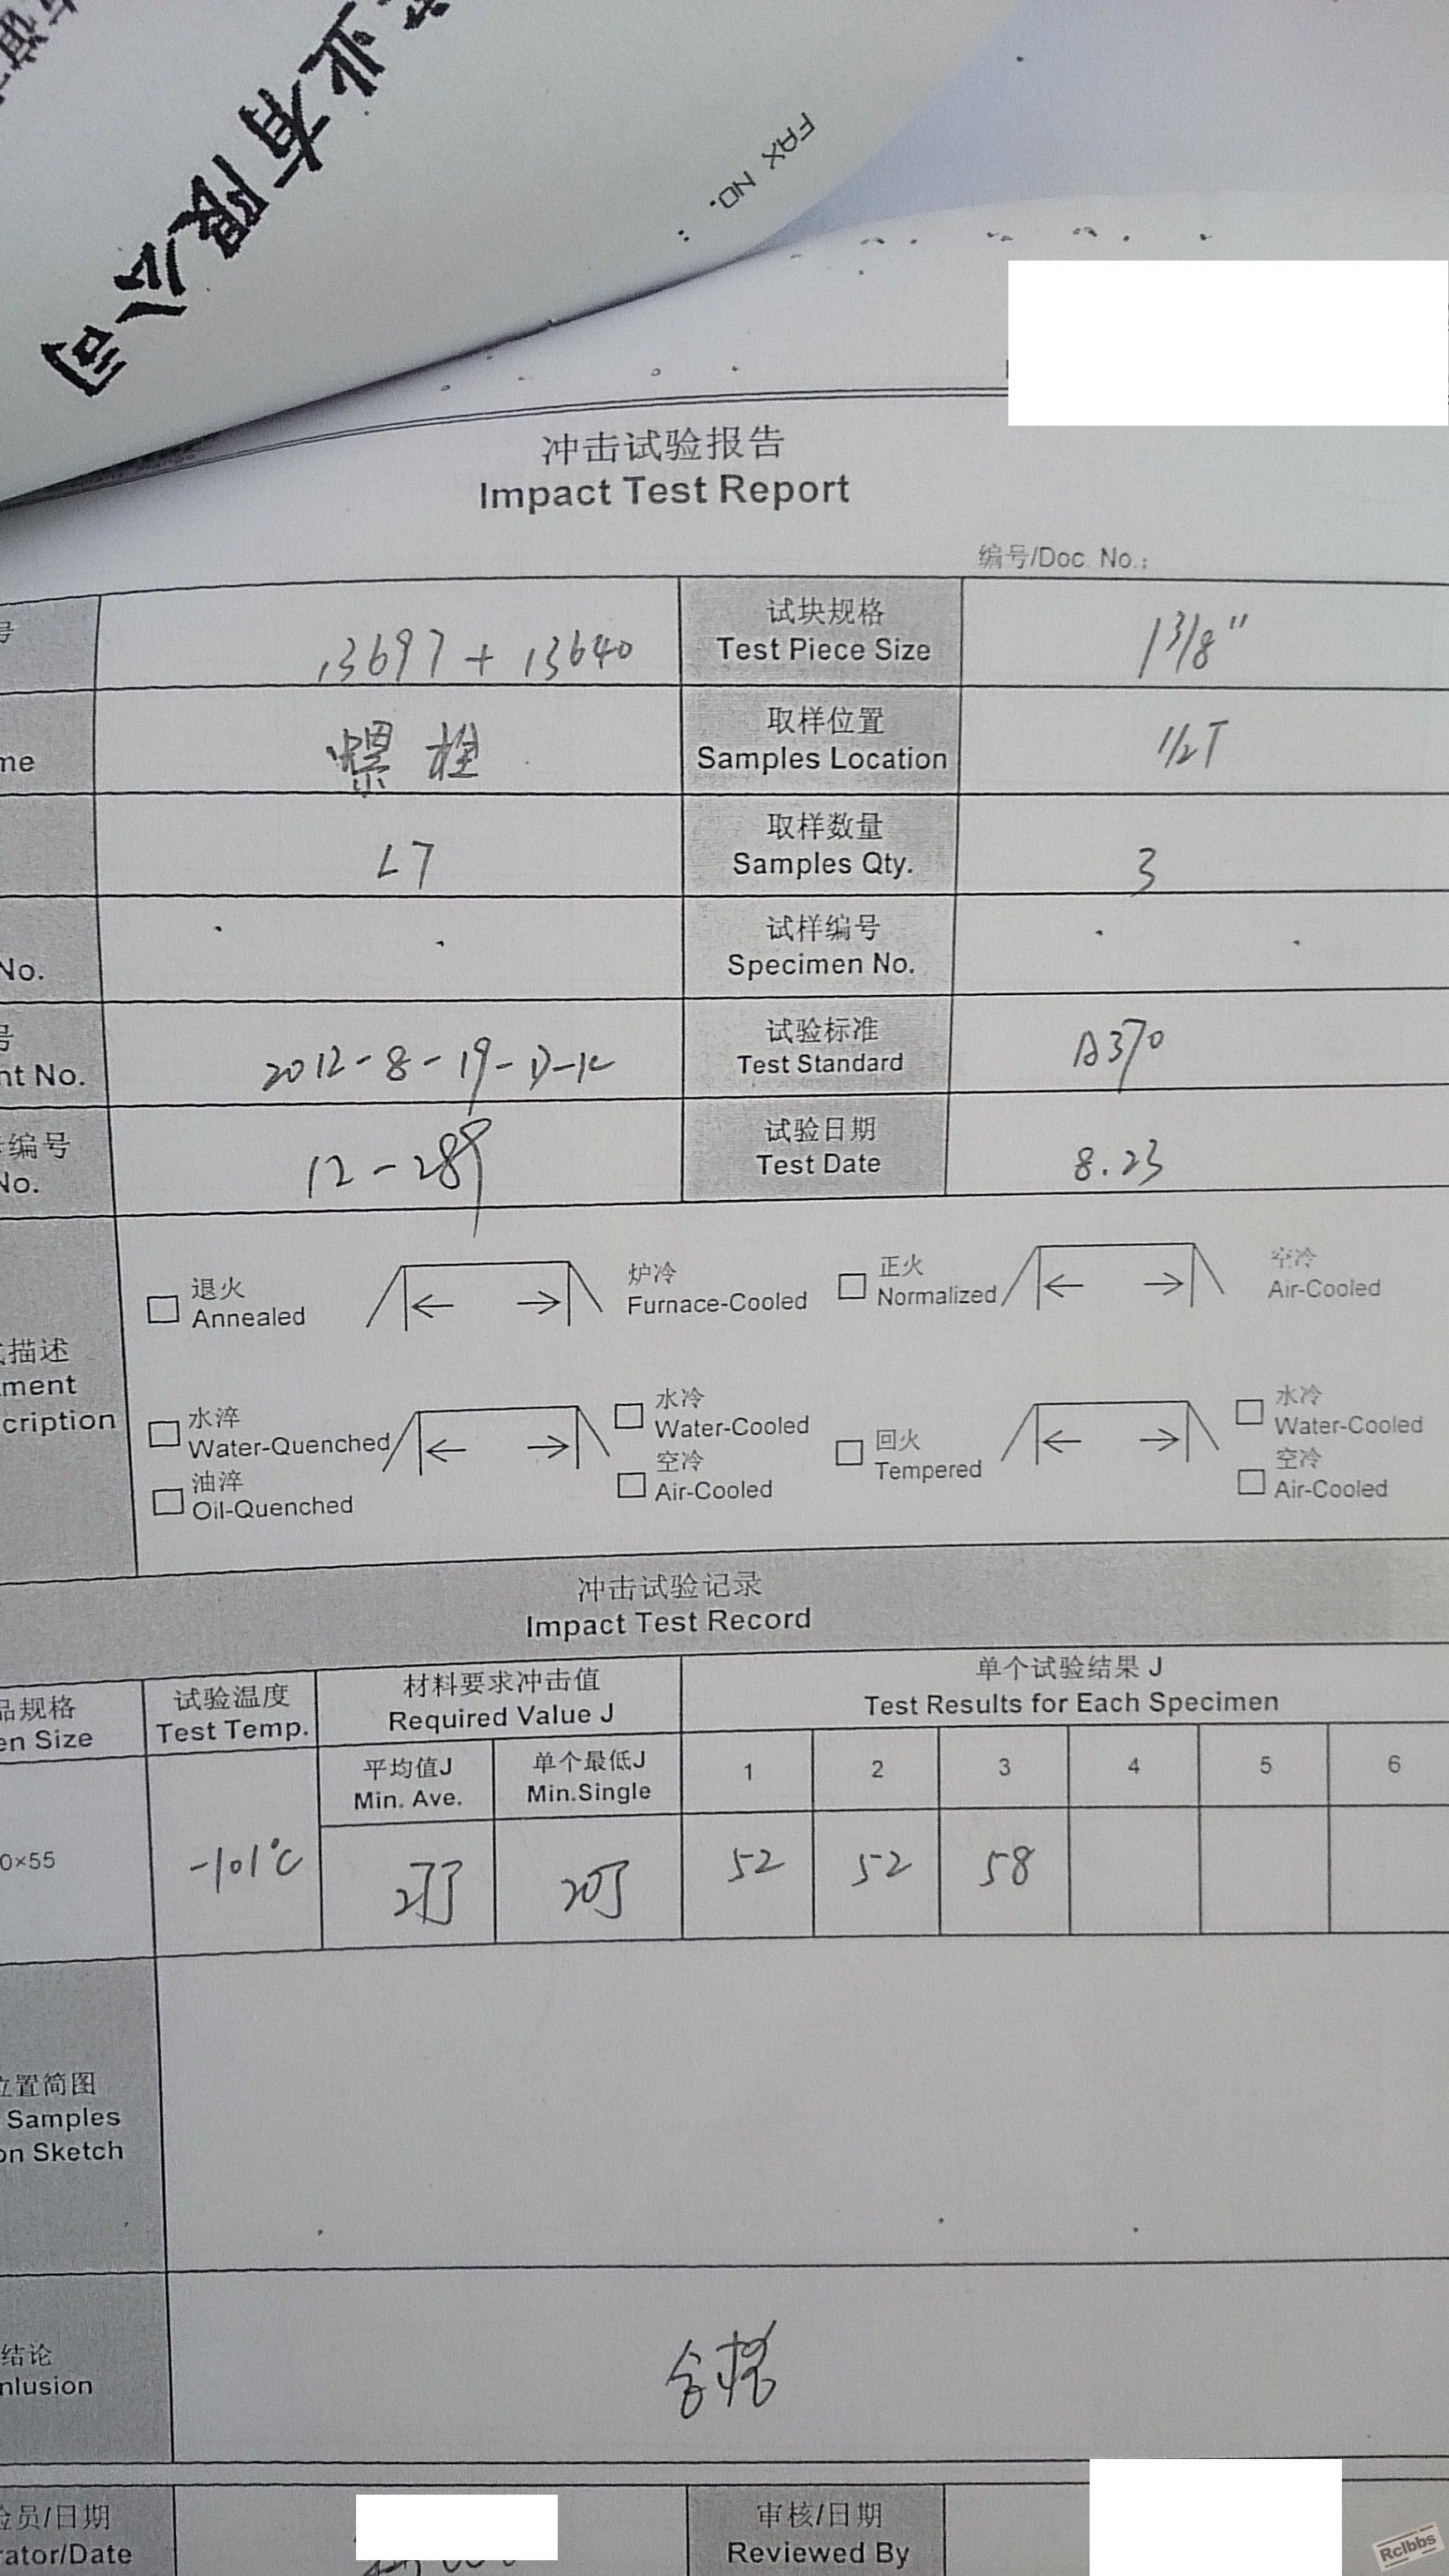 业有限公司
FAX NO. :
冲击试验报告
Impact Test Report
编号/Doc. No.:
号
13697 + 13640
试块规格
Test Piece Size
1 3/8"
me
螺栓
取样位置
Samples Location
1/2T
L7
取样数量
Samples Qty.
3
No.
试样编号
Specimen No.
号
nt No.
2012-8-19-D-K
试验标准
Test Standard
A370
编号
No.
12-289
试验日期
Test Date
8.23
式描述
ment
cription
退火
Annealed
炉冷
Furnace-Cooled
正火
Normalized
空冷
Air-Cooled
水淬
Water-Quenched
油淬
Oil-Quenched
水冷
Water-Cooled
空冷
Air-Cooled
回火
Tempered
水冷
Water-Cooled
空冷
Air-Cooled
冲击试验记录
Impact Test Record
品规格
en Size
试验温度
Test Temp.
材料要求冲击值
Required Value J
单个试验结果 J
Test Results for Each Specimen
平均值J
Min. Ave.
单个最低J
Min.Single
1 2 3 4 5 6
0×55
-101°C
27J
20J
52 52 58
位置简图
Samples
on Sketch
结论
nlusion
合格
验员/日期
rator/Date
审核/日期
Reviewed By
Rclbbs